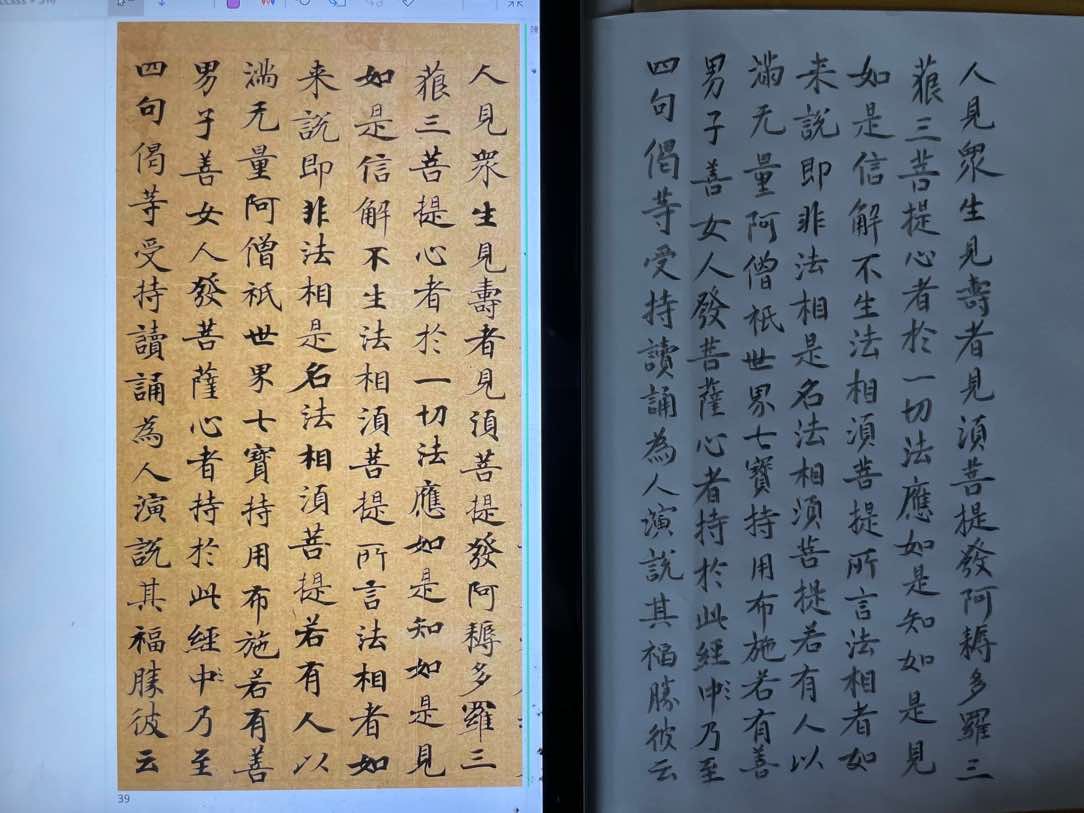 人見衆生見壽者見須菩提發阿耨多羅三
藐三菩提心者於一切法應如是知如是見
如是信解不生法相須菩提所言法相者如
来說即非法相是名法相須菩提若有人以
滿无量阿僧祇世界七寶持用布施若有善
男子善女人發菩薩心者持於此經中乃至
四句偈等受持讀誦為人演說其福勝彼云
39
人見衆生見壽者見須菩提發阿耨多羅三
藐三菩提心者於一切法應如是知如是見
如是信解不生法相須菩提所言法相者如
来說即非法相是名法相須菩提若有人以
滿无量阿僧祇世界七寶持用布施若有善
男子善女人發菩薩心者持於此經中乃至
四句偈等受持讀誦為人演說其福勝彼云